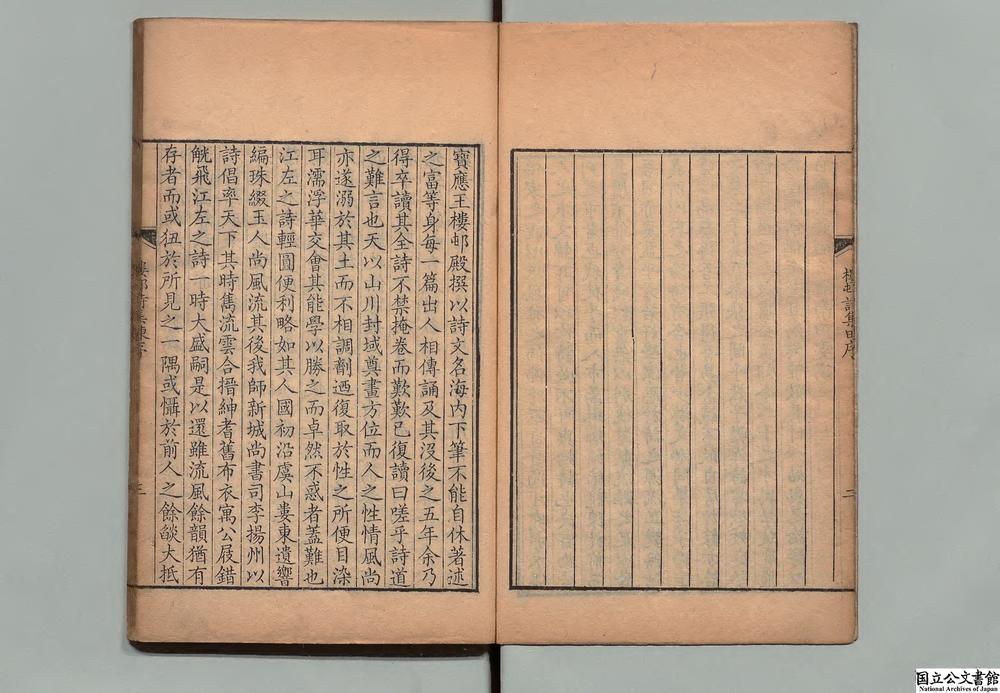 樓邨詩集田序
二
寶應王樓邨殿撰以詩文名海内下筆不能自休著述
之富等身每一篇出人相傳誦及其沒後之五年余乃
得卒讀其全詩不禁掩卷而歎歎已復讀曰嗟乎詩道
之難言也天以山川封域奠畫方位而人之性情風尚
亦遂溺於其土而不相調劑迺復取於性之所便目染
耳濡浮華交會其能學以勝之而卓然不惑者蓋難也
江左之詩輕圓便利略如其人國初沿虞山婁東遺響
編珠綴玉人尚風流其後我師新城尚書司李揚州以
詩倡率天下其時雋流雲合搢紳耆舊布衣寓公屐錯
觥飛江左之詩一時大盛嗣是以還雖流風餘韻猶有
存者而或狃於所見之一隅或懾於前人之餘燄大抵
樓邨詩集陳序
三
国立公文書館
National Archives of Japan